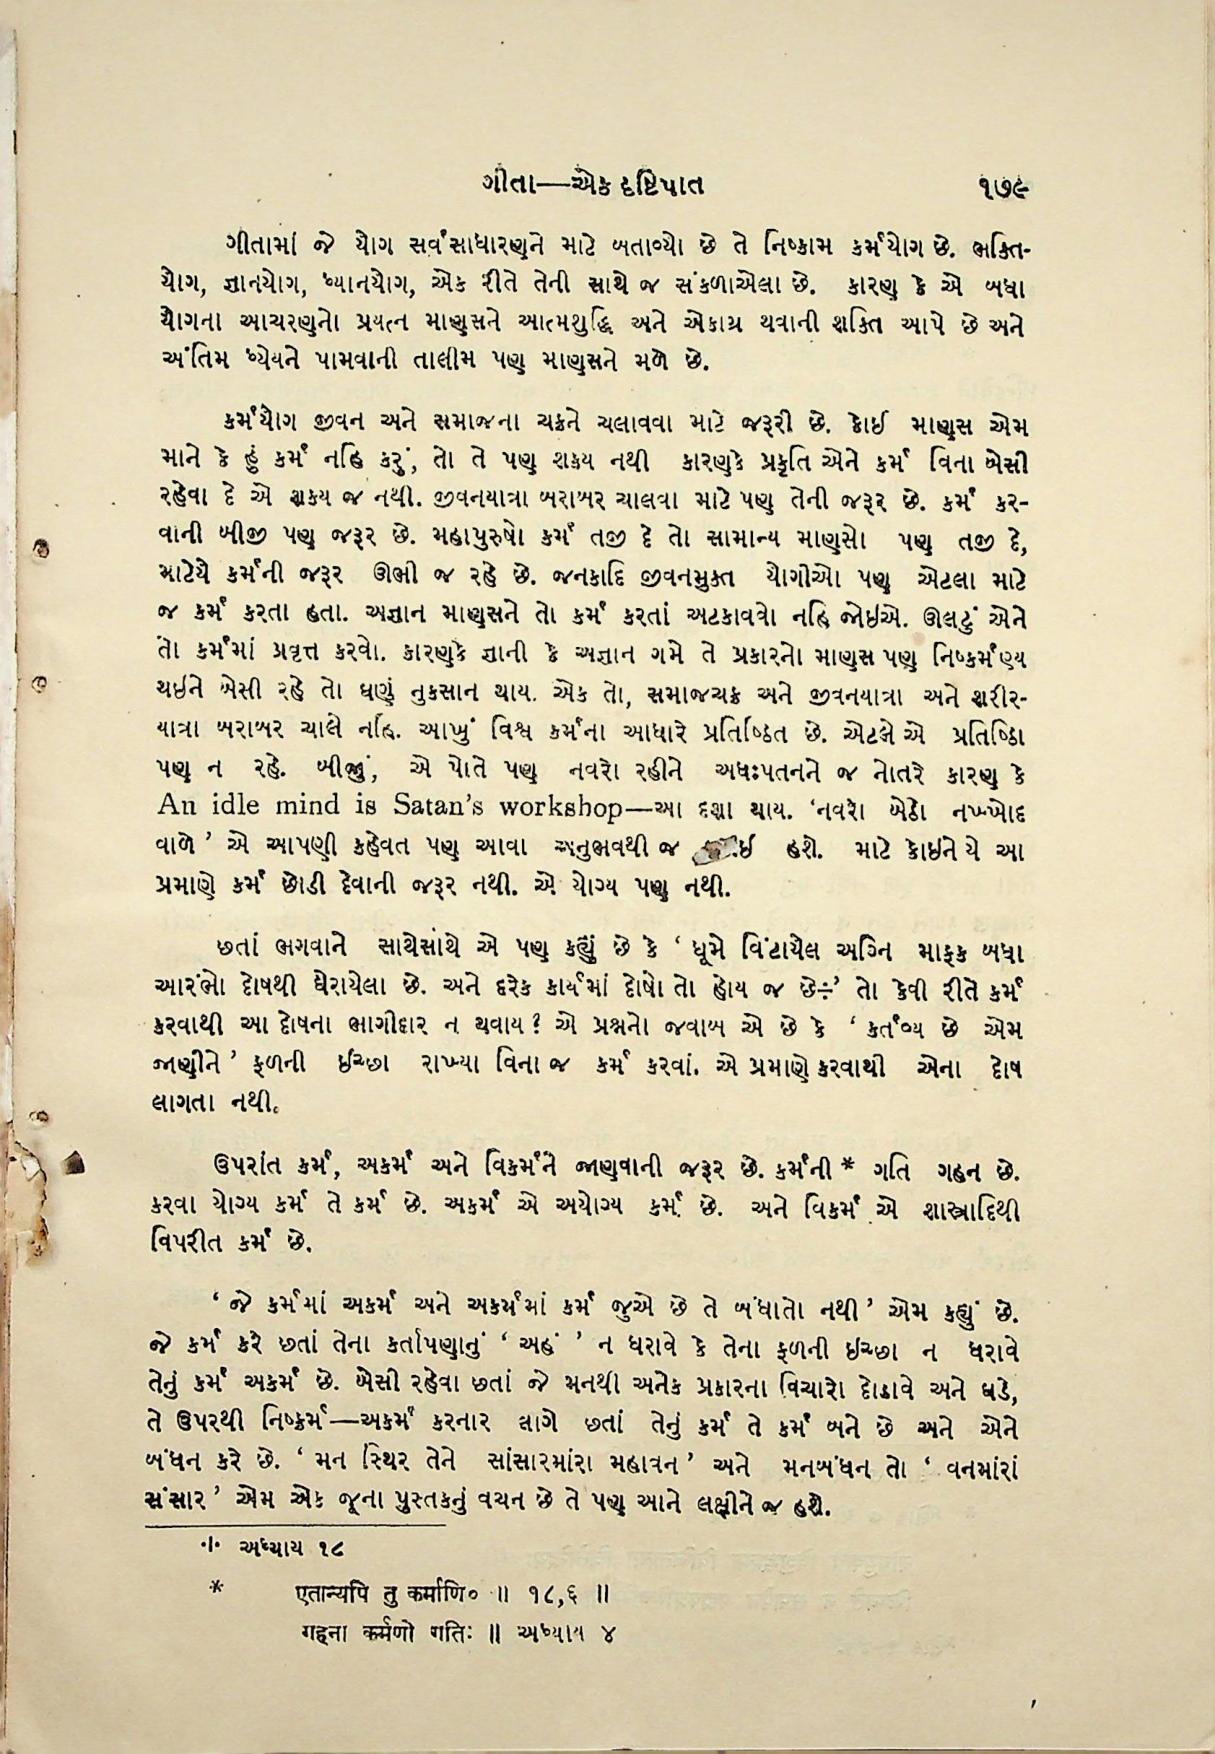 ગીતા—એક દૃષ્ટિપાત ૧૭૯
ગીતામાં જે યોગ સર્વસાધારણને માટે બતાવ્યો છે તે નિષ્કામ કર્મયોગ છે. ભક્તિ-
યોગ, જ્ઞાનયોગ, ધ્યાનયોગ, એક રીતે તેની સાથે જ સંકળાએલા છે. કારણ કે એ બધા
યોગના આચરણનો પ્રયત્ન માણસને આત્મશુદ્ધિ અને એકાગ્ર થવાની શક્તિ આપે છે અને
અંતિમ ધ્યેયને પામવાની તાલીમ પણ માણસને મળે છે.
કર્મયોગ જીવન અને સમાજના ચક્રને ચલાવવા માટે જરૂરી છે. કોઈ માણસ એમ
માને કે હું કર્મ નહિ કરું, તો તે પણ શક્ય નથી કારણકે પ્રકૃતિ એને કર્મ વિના બેસી
રહેવા દે એ શક્ય જ નથી. જીવનયાત્રા બરાબર ચાલવા માટે પણ તેની જરૂર છે. કર્મ કર-
વાની બીજી પણ જરૂર છે. મહાપુરુષો કર્મ તજી દે તો સામાન્ય માણસો પણ તજી દે,
માટેયે કર્મની જરૂર ઊભી જ રહે છે. જનકાદિ જીવનમુક્ત યોગીઓ પણ એટલા માટે
જ કર્મ કરતા હતા. અજ્ઞાન માણસને તો કર્મ કરતાં અટકાવવો નહિ જોઇએ. ઊલટું એને
તો કર્મમાં પ્રવૃત્ત કરવો. કારણકે જ્ઞાની કે અજ્ઞાન ગમે તે પ્રકારનો માણસ પણ નિષ્કર્મણ્ય
થઇને બેસી રહે તો ઘણું નુકસાન થાય. એક તો, સમાજચક્ર અને જીવનયાત્રા અને શરીર-
યાત્રા બરાબર ચાલે નહિ. આખું વિશ્વ કર્મના આધારે પ્રતિષ્ઠિત છે. એટલે એ પ્રતિષ્ઠિા
પણ ન રહે. બીજું, એ પોતે પણ નવરો રહીને અધઃપતનને જ નોતરે કારણ કે
An idle mind is Satan's workshop—આ દશા થાય. ‘નવરો બેઠો નખ્ખોદ
વાળે ’ એ આપણી કહેવત પણ આવા અનુભવથી જ હશે. માટે કોઇને યે આ
પ્રમાણે કર્મ છોડી દેવાની જરૂર નથી. એ યોગ્ય પણ નથી.
છતાં ભગવાને સાથેસાથે એ પણ કહ્યું છે કે ‘ ધૂમે વિંટાયેલ અગ્નિ માફક બધા
આરંભો દોષથી ઘેરાયેલા છે. અને દરેક કાર્યમાં દોષો તો હોય જ છે÷’ તો કેવી રીતે કર્મ
કરવાથી આ દોષના ભાગીદાર ન થવાય? એ પ્રશ્નનો જવાબ એ છે કે ‘ કર્તવ્ય છે એમ
જાણીને ’ ફળની ઇચ્છા રાખ્યા વિના જ કર્મ કરવાં. એ પ્રમાણે કરવાથી એના દોષ
લાગતા નથી.
ઉપરાંત કર્મ, અકર્મ અને વિકર્મને જાણવાની જરૂર છે. કર્મની * ગતિ ગહન છે.
કરવા યોગ્ય કર્મ તે કર્મ છે. અકર્મ એ અયોગ્ય કર્મ છે. અને વિકર્મ એ શાસ્ત્રાદિથી
વિપરીત કર્મ છે.
‘ જે કર્મમાં અકર્મ અને અકર્મમાં કર્મ જુએ છે તે બંધાતો નથી ’ એમ કહ્યું છે.
જે કર્મ કરે છતાં તેના કર્તાપણાનું ‘ અહં ’ ન ધરાવે કે તેના ફળની ઇચ્છા ન ધરાવે
તેનું કર્મ અકર્મ છે. બેસી રહેવા છતાં જે મનથી અનેક પ્રકારના વિચારો દોડાવે અને ઘડે,
તે ઉપરથી નિષ્કર્મ—અકર્મ કરનાર લાગે છતાં તેનું કર્મ તે કર્મ બને છે અને એને
બંધન કરે છે. ‘ મન સ્થિર તેને સાંસારમાંરા મહાવન ’ અને મનબંધન તો ‘ વનમાંરાં
સંસાર ’ એમ એક જૂના પુસ્તકનું વચન છે તે પણ આને લક્ષીને જ હશે.
÷ અધ્યાય ૧૮
* एतान्यपि तु कर्माणि० ॥ ૧૮,૬ ॥
गहना कर्मणो गतिः ॥ અધ્યાય ૪